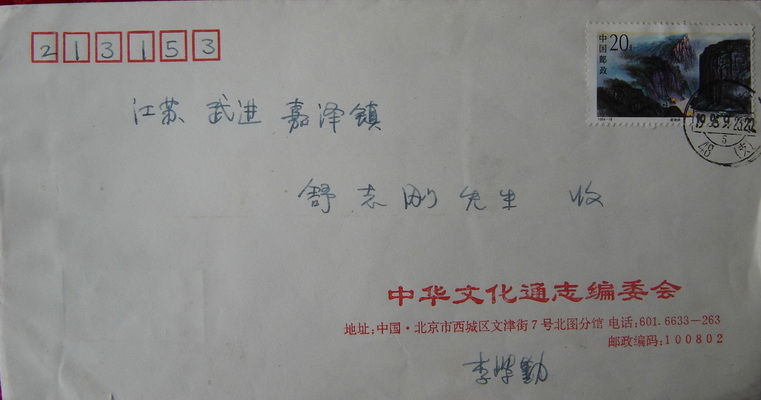 213153
中国邮政
20分
江苏 武进 嘉泽镇
舒志刚先生 收
中华文化通志编委会
地址:中国·北京市西城区文津街7号北图分馆 电话:601.6633-263
邮政编码:100802
李学勤